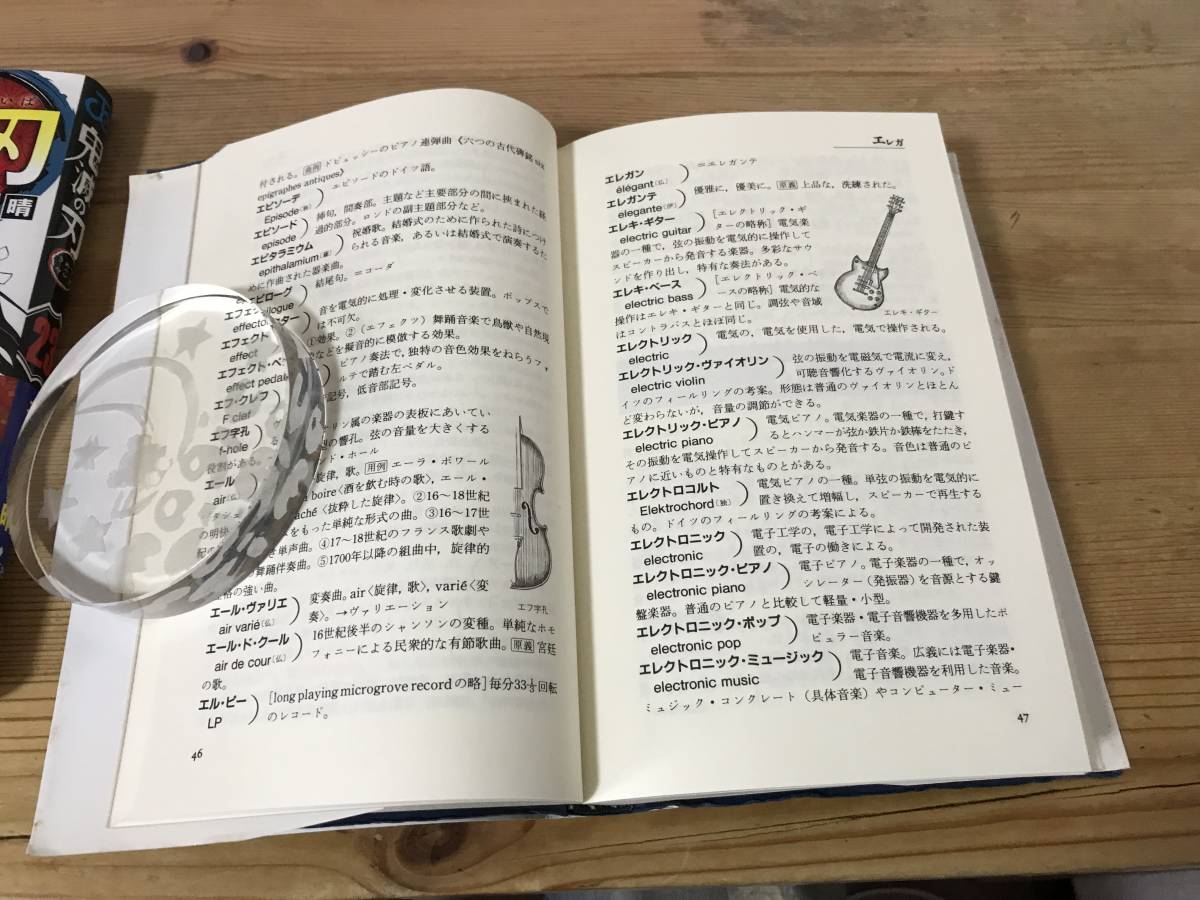 鬼滅の刃
23
晴
付される。[用例]ドビュッシーのピアノ連弾曲《六つの古代碑銘 six
epigraphes antiques》
エピソーデ
Episode(独)
エピソードのドイツ語。
エピソード
episode
挿句,間奏部。主題など主要部分の間に挟まれた経
過的部分。ロンドの副主題部分など。
エピタラミウム
epithalamium(羅)
祝婚歌。結婚式のために作られた詩につけ
られる音楽,あるいは結婚式で演奏するた
めに作曲された器楽曲。
エピローグ
epilogue
結尾句。=コーダ
エフェクター
effector
音を電気的に処理・変化させる装置。ポップスで
は不可欠。
エフェクト
effect
①効果。②(エフェクツ)舞踊音楽で鳥獣や自然現
などを擬音的に模倣する効果。
エフェクト・ペ
effect pedal
ピアノ奏法で,独特の音色効果をねらうフォ
ルテで踏む左ペダル。
エフ・クレフ
F clef
記号,低音部記号。
エフ字孔
f-hole
リン属の楽器の表板にあいてい
の響孔。弦の音量を大きくする
役割がある。
ンド・ホール
エール
air(仏)
旋律,歌。[用例]エーラ・ボワール
boire〈酒を飲む時の歌〉,エール・
ché〈抜粋した旋律〉。②16〜18世紀
の明快
をもった単純な形式の曲。③16〜17世
紀の
き単声曲。④17〜18世紀のフランス歌劇や
舞踊伴奏曲。⑤1700年以降の組曲中,旋律的
性格の強い曲。
エフ字孔
エール・ヴァリエ
air varié(仏)
変奏曲。air〈旋律,歌〉,varié〈変
奏〉。→ヴァリエーション
エール・ド・クール
air de cour(仏)
16世紀後半のシャンソンの変種。単純なホモ
フォニーによる民衆的な有節歌曲。[原義]宮廷
の歌。
エル・ピー
LP
[long playing microgrove recordの略]毎分33⅓回転
のレコード。
46
エレガ
エレガン
élégant(仏)
=エレガンテ
エレガンテ
elegante(伊)
優雅に,優美に。[原義]上品な,洗練された。
エレキ・ギター
electric guitar
[エレクトリック・ギ
ターの略称]電気楽
器の一種で,弦の振動を電気的に操作して
スピーカーから発音する楽器。多彩なサウ
ンドを作り出し,特有な奏法がある。
エレキ・ベース
electric bass
[エレクトリック・ベ
ースの略称]電気的な
操作はエレキ・ギターと同じ。調弦や音域
はコントラバスとほぼ同じ。
エレキ・ギター
エレクトリック
electric
電気の,電気を使用した,電気で操作される。
エレクトリック・ヴァイオリン
electric violin
弦の振動を電磁気で電流に変え,
可聴音響化するヴァイオリン。ド
イツのフィールリングの考案。形態は普通のヴァイオリンとほとん
ど変わらないが,音量の調節ができる。
エレクトリック・ピアノ
electric piano
電気ピアノ。電気楽器の一種で,打鍵す
るとハンマーが弦か鉄片か鉄棒をたたき,
その振動を電気操作してスピーカーから発音する。音色は普通のピ
アノに近いものと特有なものとがある。
エレクトロコルト
Elektrochord(独)
電気ピアノの一種。単弦の振動を電気的に
置き換えて増幅し,スピーカーで再生する
もの。ドイツのフィールリングの考案による。
エレクトロニック
electronic
電子工学の,電子工学によって開発された装
置の,電子の働きによる。
エレクトロニック・ピアノ
electronic piano
電子ピアノ。電子楽器の一種で,オッ
シレーター(発振器)を音源とする鍵
盤楽器。普通のピアノと比較して軽量・小型。
エレクトロニック・ポップ
electronic pop
電子楽器・電子音響機器を多用したポ
ピュラー音楽。
エレクトロニック・ミュージック
electronic music
電子音楽。広義には電子楽器・
電子音響機器を利用した音楽。
ミュジック・コンクレート(具体音楽)やコンピューター・ミュー
47